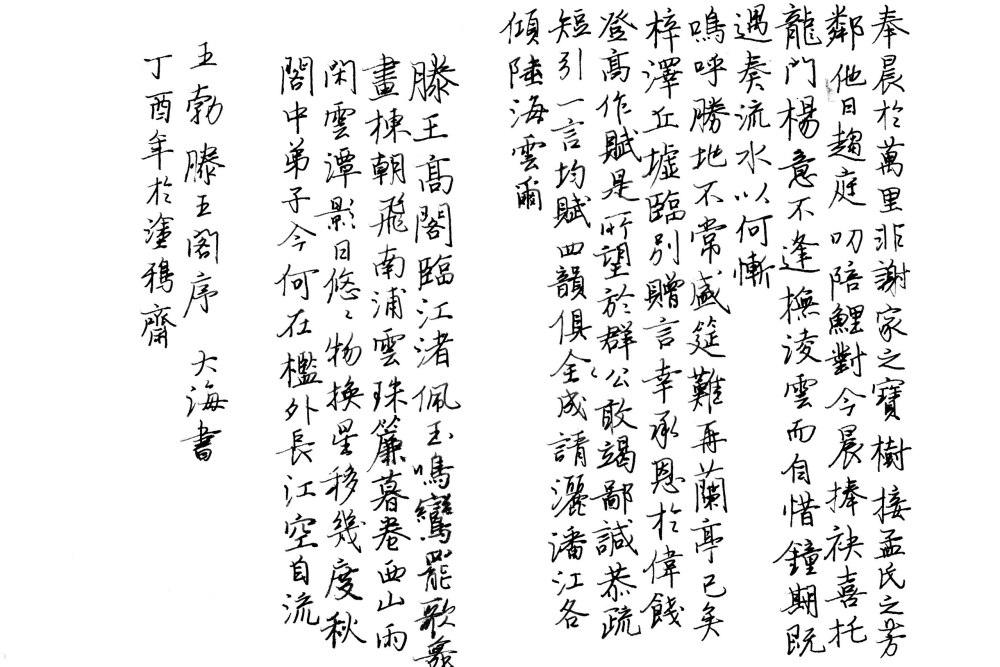 奉晨於萬里非謝家之寶樹接孟氏之芳
鄰他日趨庭叨陪鯉對今晨捧袂喜托
龍門楊意不逢撫淩雲而自惜鐘期既
遇奏流水以何慚
嗚呼勝地不常盛筵難再蘭亭已矣
梓澤丘墟臨別贈言幸承恩於偉餞
登高作賦是所望於群公敢竭鄙誠恭疏
短引一言均賦四韻俱全成請灑潘江各
傾陸海雲爾
滕王高閣臨江渚佩玉鳴鸞罷歌舞
畫棟朝飛南浦雲珠簾暮卷西山雨
閑雲潭影日悠〻物換星移幾度秋
閣中弟子今何在檻外長江空自流
王勃滕王阁序 大海書
丁酉年於塗鴉齋